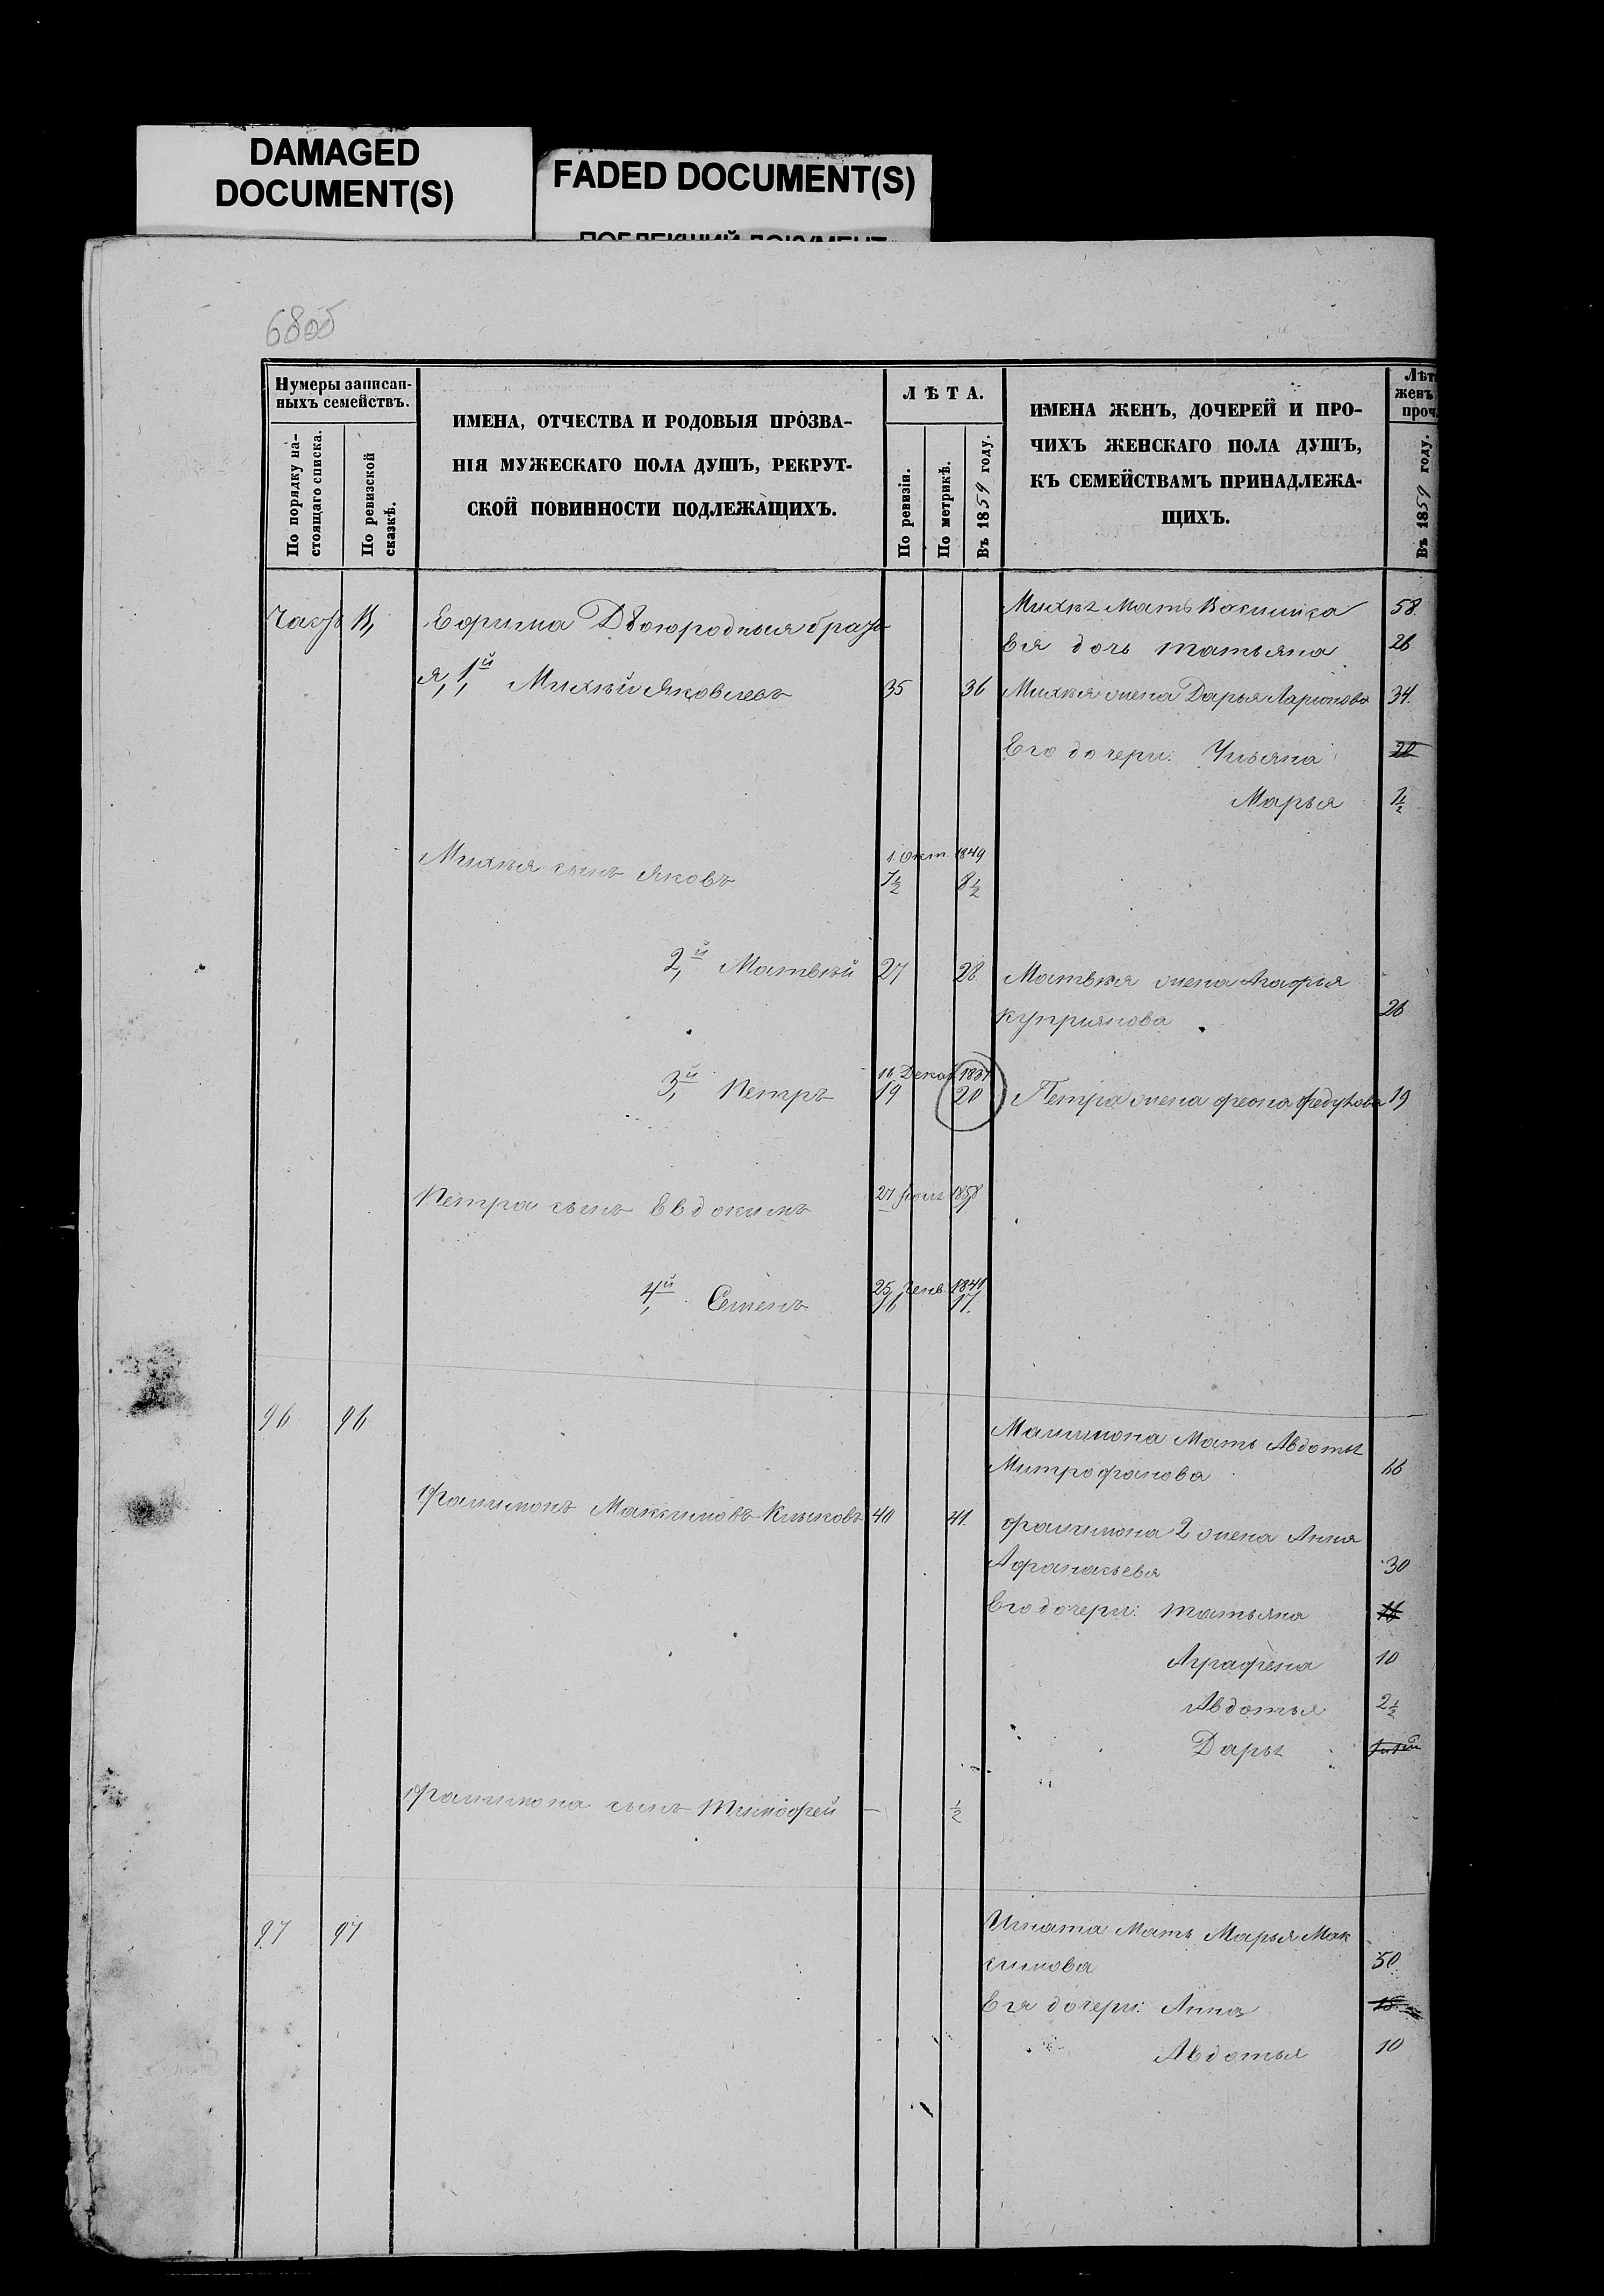 DAMAGED
DOCUMENT(S)
FADED DOCUMENT(S)
ПОБЛЕКШИЙ ДОКУМЕНТ
6805
Нумеры записан-
ныхъ семействъ.
По порядку на-
стоящаго списка.
По ревизской
сказкѣ.
ИМЕНА, ОТЧЕСТВА И РОДОВЫЯ ПРОЗВА-
НІЯ МУЖЕСКАГО ПОЛА ДУШЪ, РЕКРУТ-
СКОЙ ПОВИННОСТИ ПОДЛЕЖАЩИХЪ.
ЛѢТА.
По ревизіи.
По метрикѣ.
Въ 1859 году.
ИМЕНА ЖЕНЪ, ДОЧЕРЕЙ И ПРО-
ЧИХЪ ЖЕНСКАГО ПОЛА ДУШЪ,
КЪ СЕМЕЙСТВАМЪ ПРИНАДЛЕЖА-
ЩИХЪ.
Лѣт
женъ
проч.
Въ 1859 году.
Михѣ Мать Василиса 58
Ефима Двоюродныя брать
Ея дочь Татьяна 26
я, 1й Михѣй Яковлевъ 35 36 Михѣя жена Дарья Ларионова 34.
Его дочери: Ульяна 20
Марья 1½
1 Окт 1849
Михѣя сынъ Яковъ 7½ 8½
2й Матвѣй 27 28 Матвѣя жена Агафья
Куприянова 26
16 Декаб 1837
3й Петръ 19 20 Петра жена Федулова 19
Петра сынъ Евдокимъ 27 1858
25 Генв 1841
4й Семенъ 16 17
96 96 Мать Авдотья
Митрофанова 66
Филимонъ Максимовъ 40 41. Филимона 2 жена Анна
Афанасьева 30
Его дочери: Татьяна 16
Аграфена 10
Авдотья 2½
Дарья
Филимона сынъ Тимофей — ½
97 97 Игната Мать Марья Мак
симова 50
Ея дочери: Анна 18
Авдотья 10